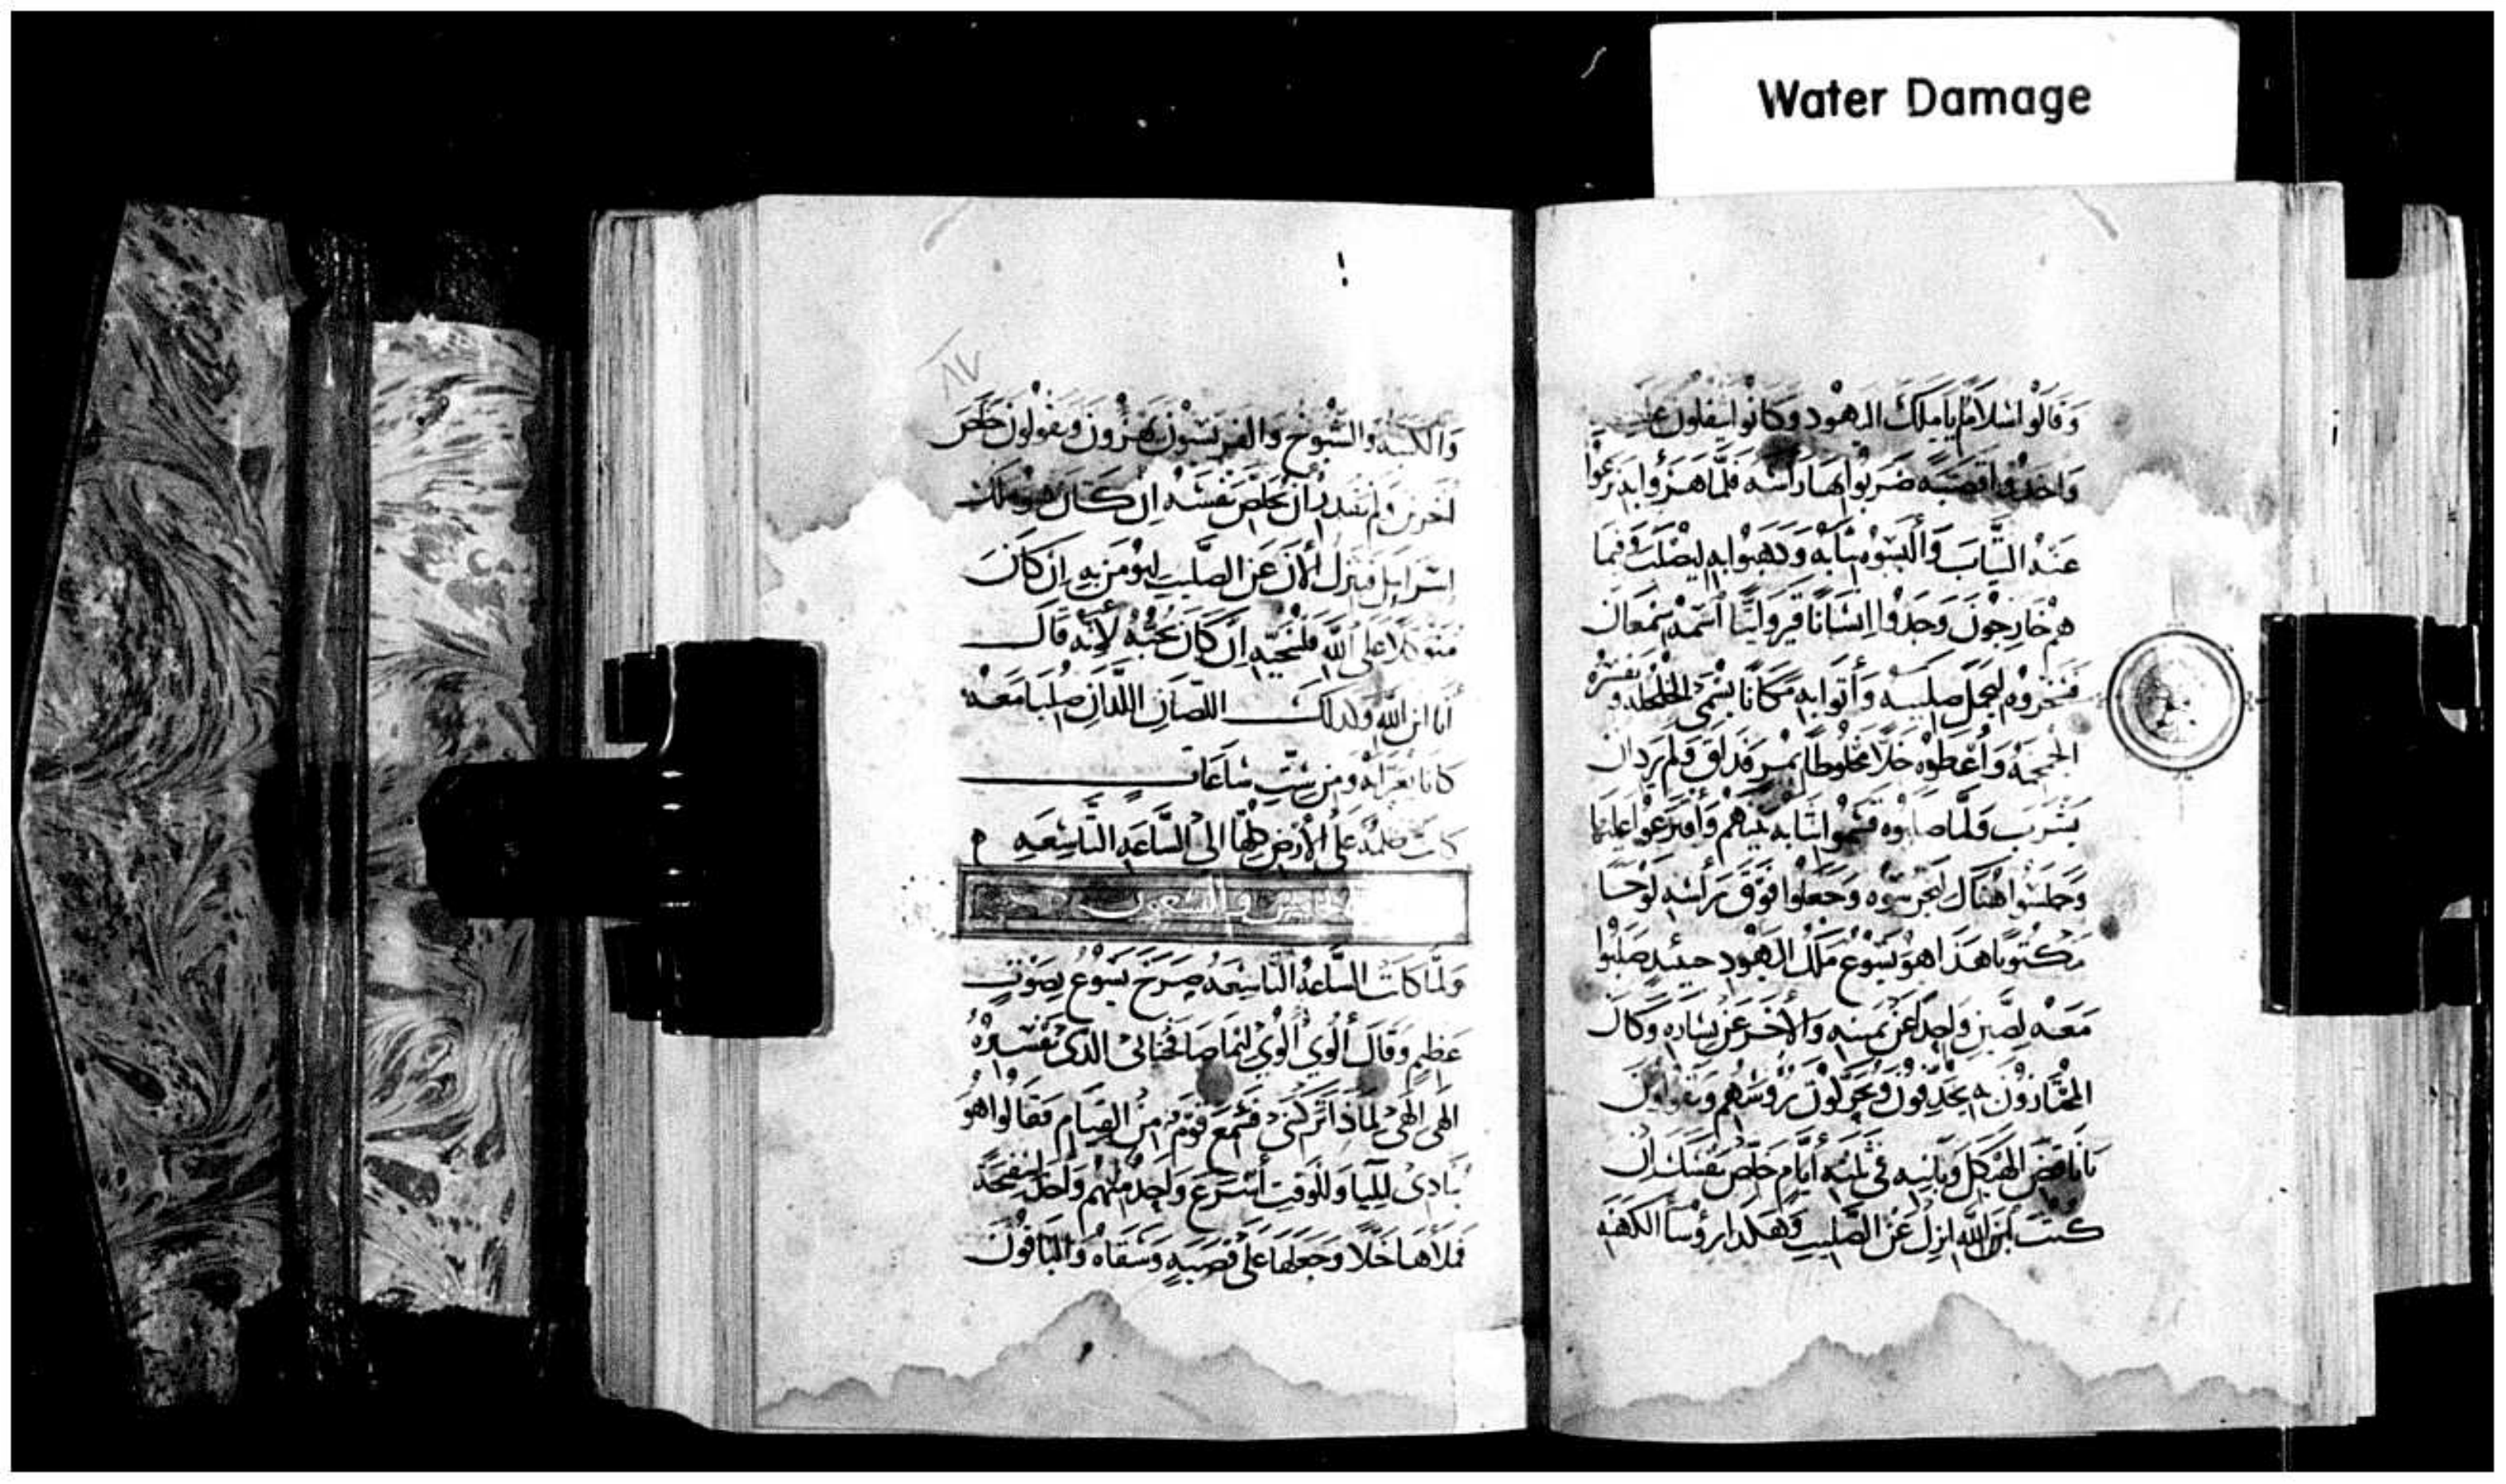 Water Damage
وَقَالُوا اسَلَامُ يَا مَلِكَ اليَهُود وَكَانُوا يتفلون عليه
وَاخذوا قصَبَه ضَرَبُوا بها رَاسَه فَلَمَّا هَزؤا بِه نَزَعُوا
عَنهُ الثيَابَ وَالبَسَوُه ثيَابَه وَذهَبوُا بِه ليُصْلَبَ وفيما
هم خَارجُونَ وَجَدُوا اِنسَانًا قيروانيًّا اسمُه سمعَان
فسَخروُه ليحمل صَليبَه وَأتوا بِه مكَانًا يسَمّى الجلجله وتفسيره
الجمجمه وَأعْطوُه خَلًا مخلوطًا بمُرٍ فذاق ولم يرد ان
يَشرَب وَلمَّا صَلبوُه قسَموُا ثيابه بَينَهم وَاقترعوا عليها
وَجَلَسُوا هنَاك ليحرسُوه وَجَعَلوا فَوْقَ رَأسه لوْحًا
مَكتوبًا هَذا هوَ يَسُوع مَلكُ اليَهُود حينئذٍ صَلبُوا
مَعَه لصَّين واحِدًا عَن يَمينه وَالآخَر عَن يسَاره وَكان
المجتازوُن يجدفوُن ويحَرِّكوُن رُؤسَهُم وَيَقولون
يَا نَاقضَ الهَيكل وَبَانيه في ثلثه أيام خلّص نفسَك ان
كنتَ ابنَ الله انزل عَن الصَّليب وَهَكذا رؤسَا الكهَنه
٨٧
وَالكتبه والشيُوخ وَالفريسيوُن يهزؤون ويقولون خلّص
آخرين وَلم يَقدر أن يخلّص نَفسَه اِن كَان هو ملك
اسرَايل فينزل الآن عَن الصَّليب ليؤمَن به اِن كَانَ
مُتوكلًا عَلى الله فلينجيه اِن كَانَ يحبُّه لأنه قَال
أنا ابن الله وكذلك اللصَان اللّذَان صُلبَا مَعَه
كانا يعيّرانه ومن سِتِّ سَاعَات
كانَت ظلمَه عَلى الأرْض كلها الى السَّاعَه التاسِعَه
وَلمَّا كانت السَّاعَه التاسِعَه صَرَخَ يَسُوع بصَوْتٍ
عَظيم وَقَال ألوي ألوي لِمَا صَافختاني الذي تفسيرُه
الهى الهى لماذا تركتني فسَمعَ قومٌ منَ القيام فقالوا هوَ
يُنادى لِايليا وَللوقت أسْرَعَ واحدٌ منهُم وَاخذ اسفنجَة
فملأهَا خَلًا وَجَعَلَهَا عَلى قصَبَه وَسَقاهُ وَالبَاقوُن